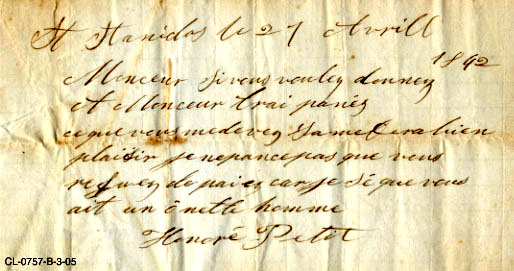 St Stanislas le 27 Avrill
1892
Monceur si vous vouley donney
A Monceur trai paniés
ceque vous medevey Sa me fera bien
plaisir je nepancepas que vous
refuney de paiey carje sé que vous
ait un ônette homme
Honoré Petit
CL-0757-B-3-05